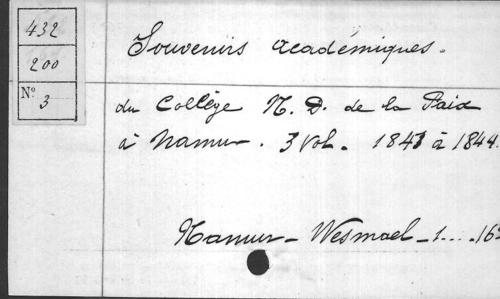 432
200
Nº 3
Souvenirs académiques.
du Collège N. D. de la Paix
à Namur. 3 vol. 1843 à 1844.
Namur - Wesmael - 1....16º